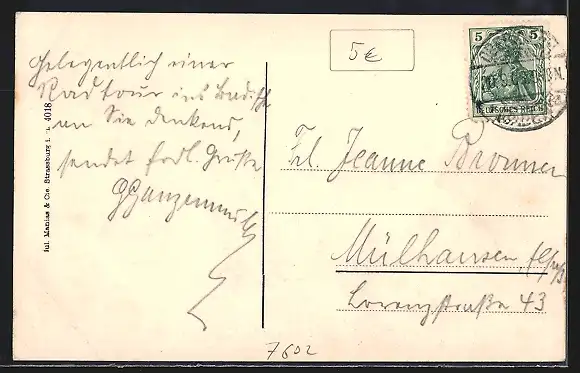 Gelegentlich einer
Radtour ins Badische
an Sie denkend,
sendet frdl. Grüße
5 €
5 5
DEUTSCHES REICH
Frl. Jeanne Bronner
Mülhausen, Elsaß
Lorenzstraße 43
Jul. Manias & Cie. Strassburg i. 4018
7602